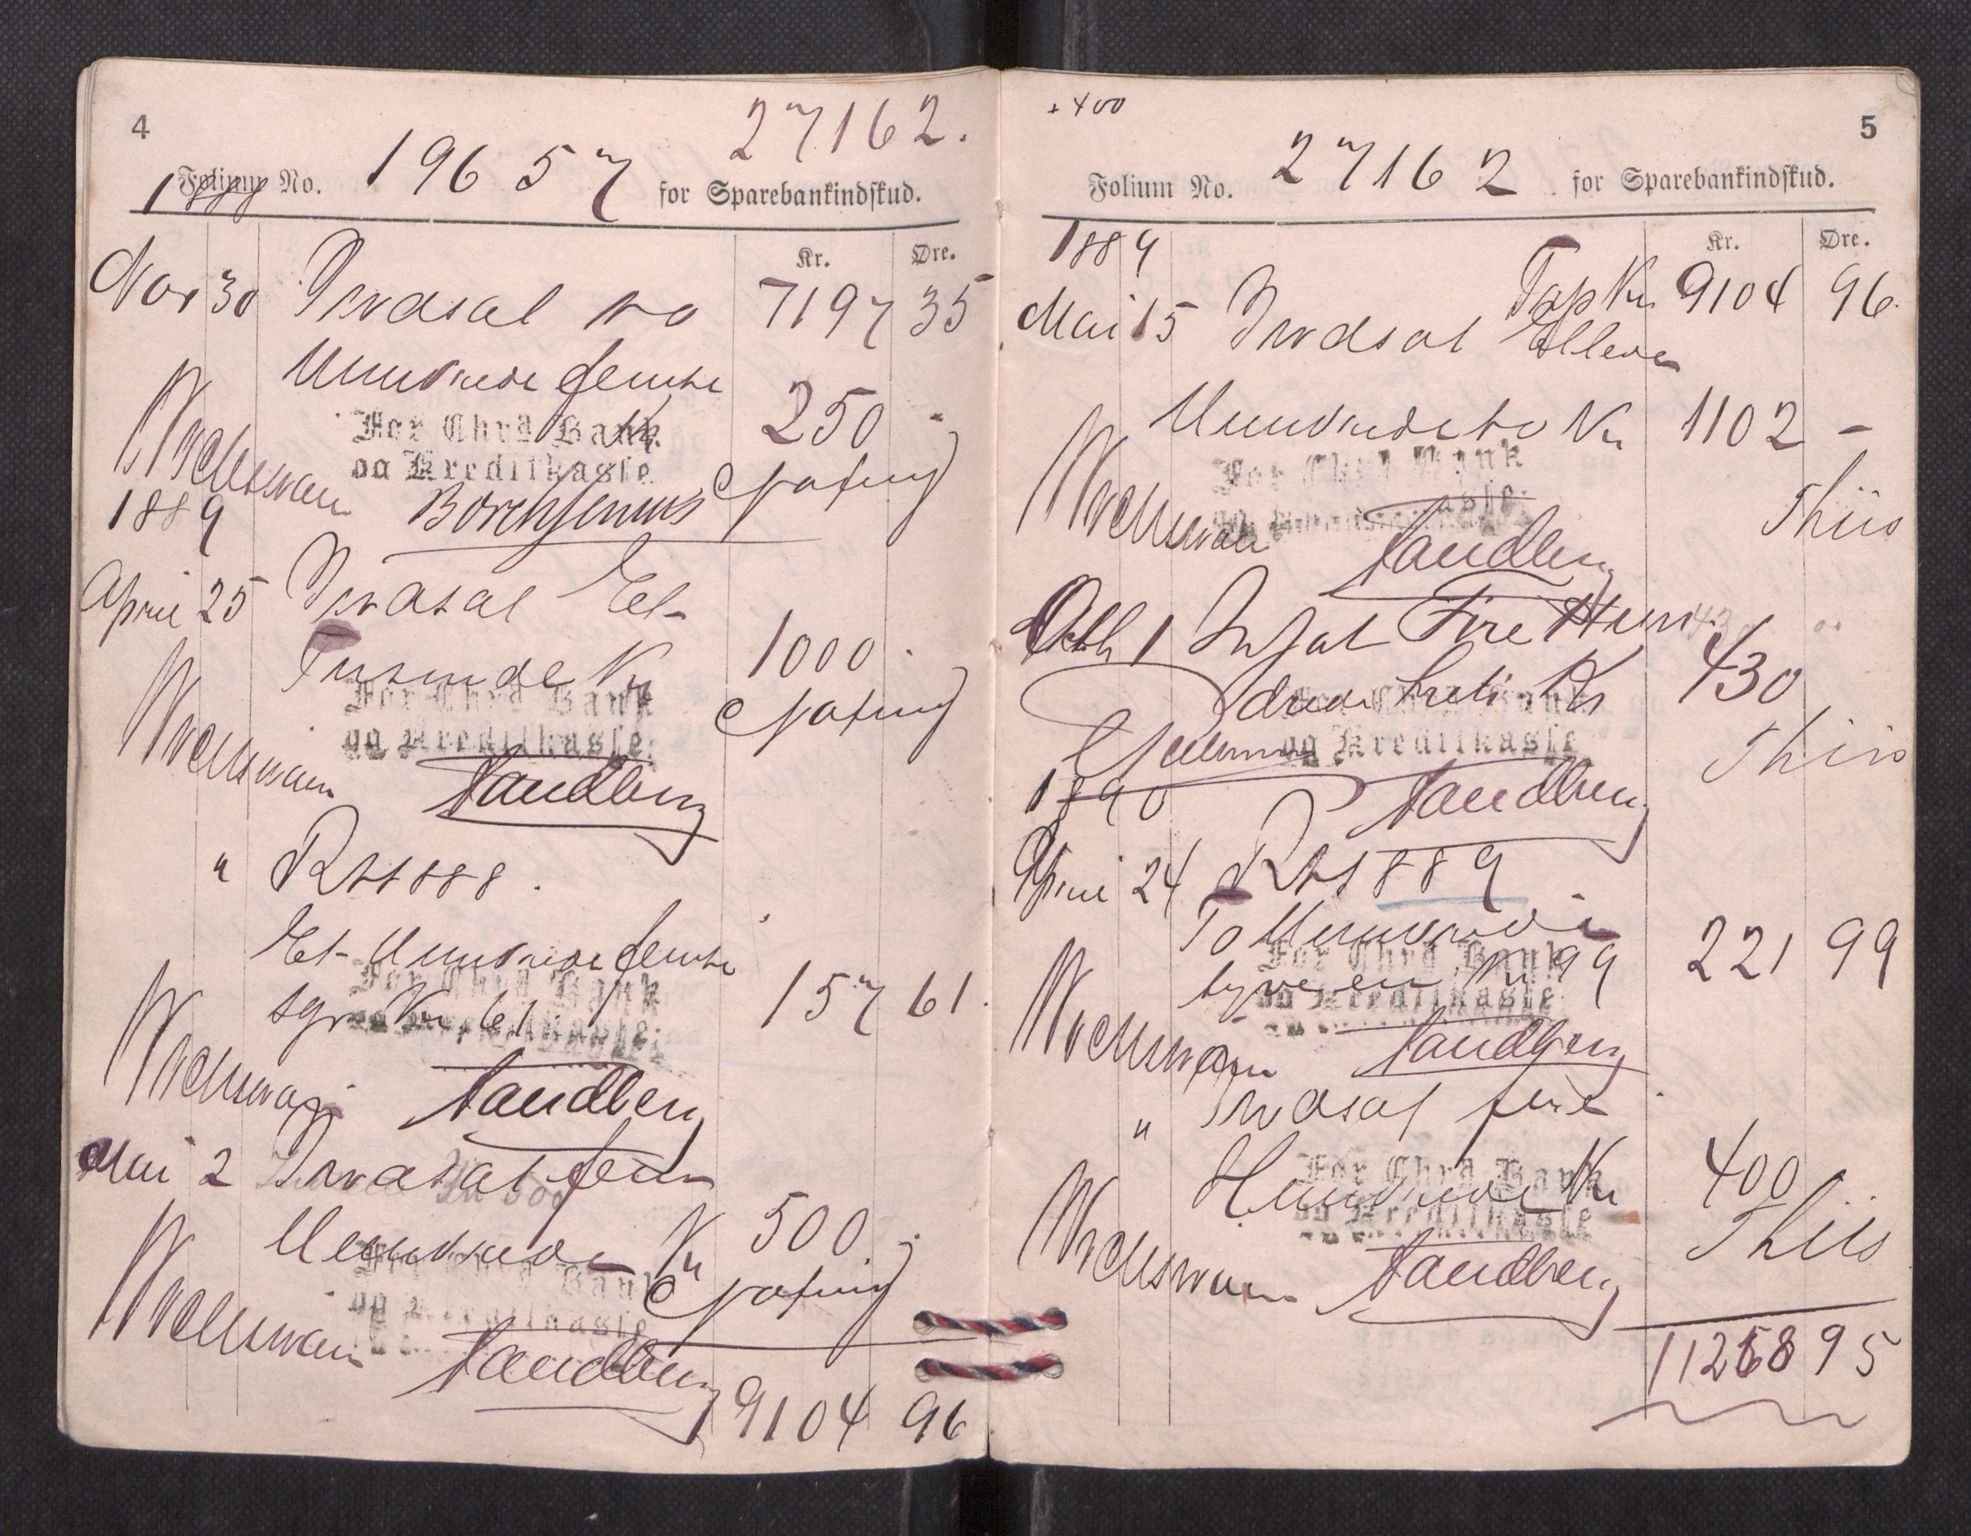 4
27162.
Folium No. 19657 for Sparebankindskud.
1888
Kr. Øre.
Nov 30 Indsat to 7197 35
Hundrede femti Kr 250 -
For Chra Bank
og Kreditkasse
Borchsenius
1889
April 25 Indsat Et
Tusinde Kr 1000 -
For Chra Bank
og Kreditkasse.
Sandberg
" Rt 1888.
Et Hundrede femti
syv Kr 61 157 61.
For Chra Bank
og Kreditkasse.
Sandberg
Mai 2 Indsat fem
Hundrede Kr 500 -
For Chra Bank
og Kreditkasse
Sandberg
9104 96
+ 400
5
Folium No. 27162 for Sparebankindskud.
1889
Kr. Øre.
Trsp Kr 9104 96.
Mai 15 Indsat Elleve
Hundrede to Kr 1102 -
For Chra Bank
og Kreditkasse.
Thiis
Sandberg
Octb 1 Indsat Fire Hun
drede treti Kr 430
For Chra Bank
og Kreditkasse
Thiis
Sandberg
1890
April 24 Rt 1889
To Hundrede
tyve en Kr 99 221 99
For Chra Bank
og Kreditkasse
Sandberg
" Indsat fire
Hundrede Kr 400
For Chra Bank
og Kreditkasse
Thiis
Sandberg
11258 95